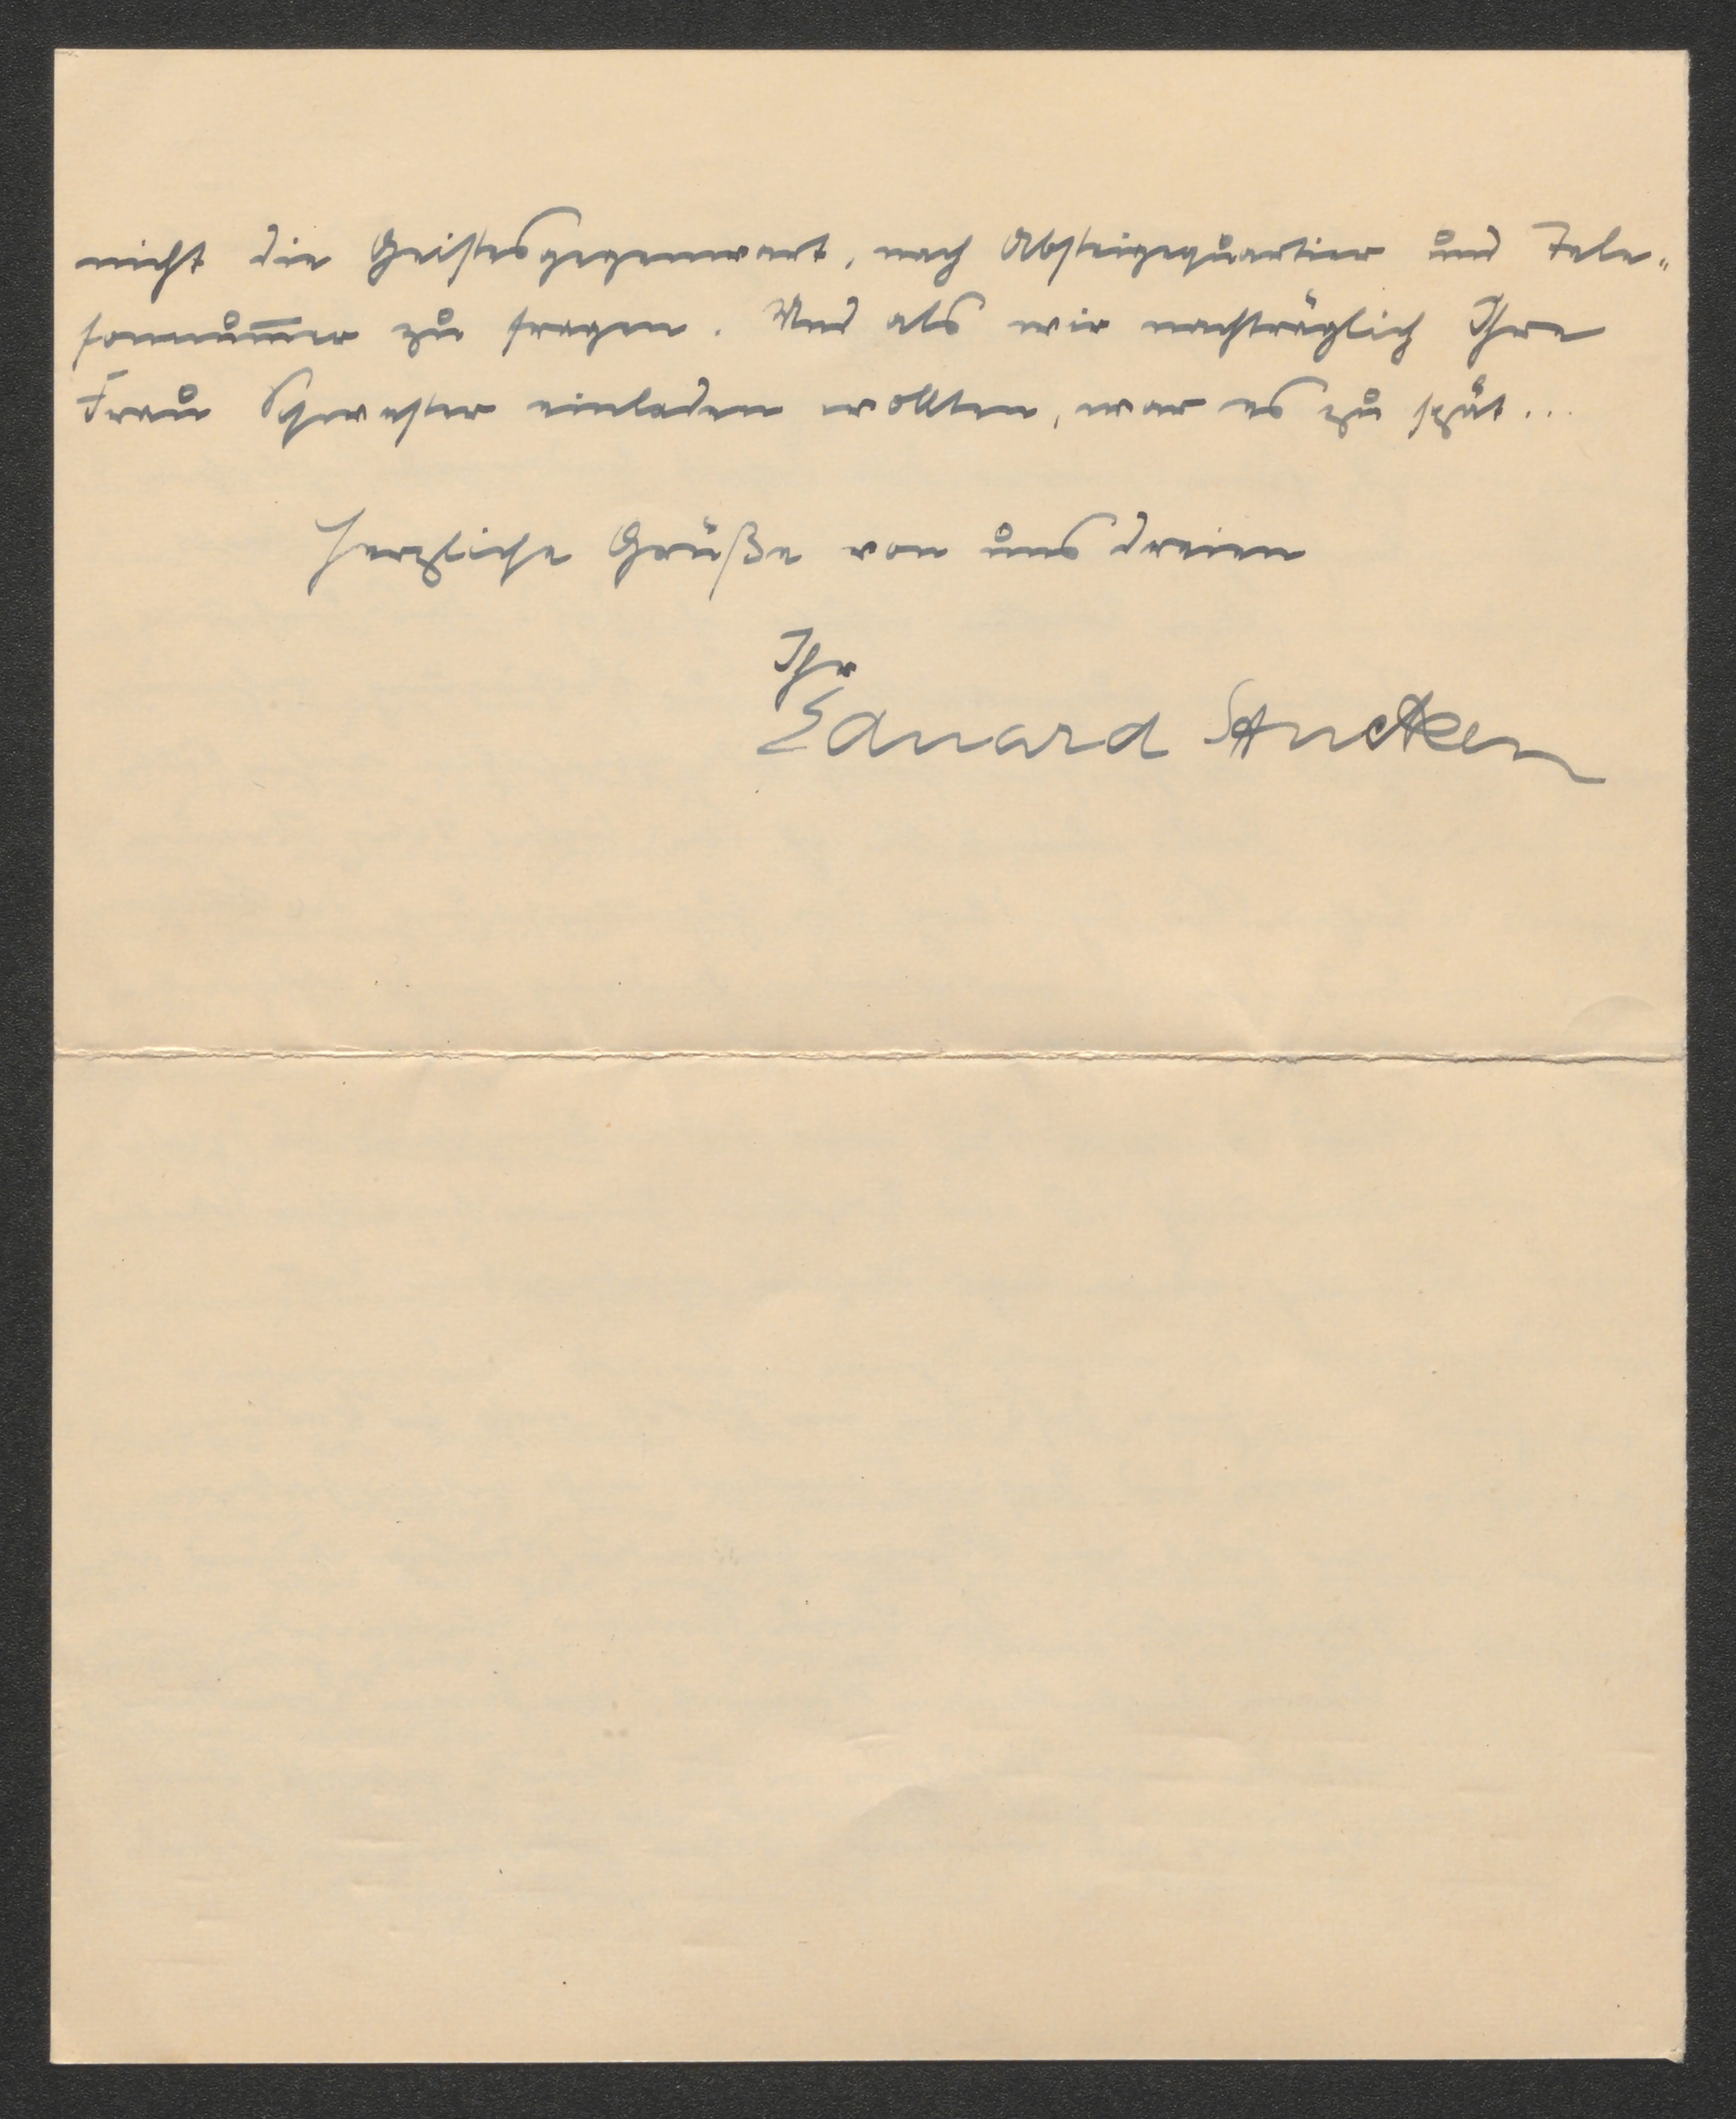 nicht die Geistesgegenwart, nach Absteigequartier und Tele-
fonnum̅er zu fragen. Und als wir nachträglich Ihre
Frau Schwester einladen wollten, war es zu spät...
Herzliche Grüße von uns dreien
Ihr
Eduard Stucken